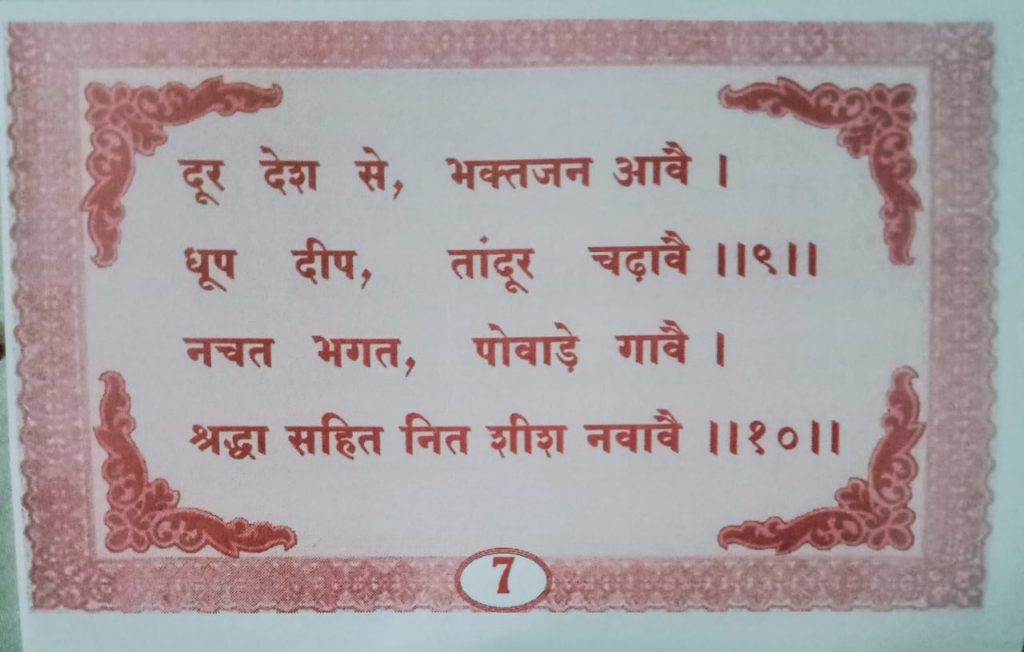 दूर देश से, भक्तजन आवै ।
धूप दीप, तांदूर चढ़ावै ।।९।।
नचत भगत, पोवाड़े गावै ।
श्रद्धा सहित नित शीश नवावै ।।१०।।
7